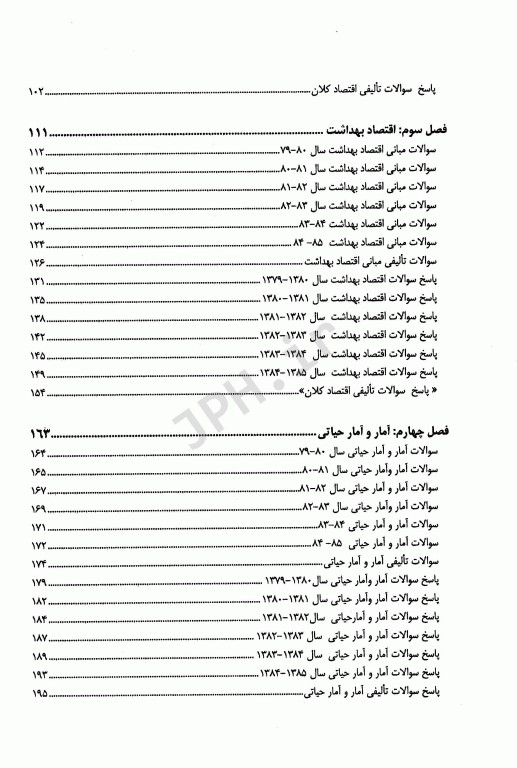 پاسخ سوالات تألیفی اقتصاد کلان ۱۰۲
فصل سوم: اقتصاد بهداشت ۱۱۱
سوالات مبانی اقتصاد بهداشت سال ۸۰-۷۹ ۱۱۲
سوالات مبانی اقتصاد بهداشت سال ۸۱-۸۰ ۱۱۴
سوالات مبانی اقتصاد بهداشت سال ۸۲-۸۱ ۱۱۷
سوالات مبانی اقتصاد بهداشت سال ۸۳-۸۲ ۱۱۹
سوالات مبانی اقتصاد بهداشت ۸۴-۸۳ ۱۲۲
سوالات مبانی اقتصاد بهداشت ۸۵- ۸۴ ۱۲۴
سوالات تألیفی مبانی اقتصاد بهداشت ۱۲۶
پاسخ سوالات اقتصاد بهداشت سال ۱۳۸۰-۱۳۷۹ ۱۳۱
پاسخ سوالات اقتصاد بهداشت سال ۱۳۸۱-۱۳۸۰ ۱۳۵
پاسخ سوالات اقتصاد بهداشت سال ۱۳۸۲-۱۳۸۱ ۱۳۸
پاسخ سوالات اقتصاد بهداشت سال ۱۳۸۳-۱۳۸۲ ۱۴۲
پاسخ سوالات اقتصاد بهداشت سال ۱۳۸۴-۱۳۸۳ ۱۴۵
پاسخ سوالات اقتصاد بهداشت سال ۱۳۸۵-۱۳۸۴ ۱۴۹
« پاسخ سوالات تألیفی اقتصاد کلان» ۱۵۴
فصل چهارم: آمار و آمار حیاتی ۱۶۳
سوالات آمار و آمار حیاتی سال ۸۰-۷۹ ۱۶۴
سوالات آمار وآمار حیاتی سال ۸۱-۸۰ ۱۶۵
سوالات آمار و آمار حیاتی سال ۸۲-۸۱ ۱۶۷
سوالات آمار وآمار حیاتی سال ۸۳-۸۲ ۱۶۹
سوالات آمار و آمار حیاتی ۸۴-۸۳ ۱۷۱
سوالات آمار و آمار حیاتی ۸۵- ۸۴ ۱۷۲
سوالات تألیفی آمار و آمار حیاتی ۱۷۴
پاسخ سوالات آمار وآمار حیاتی سال۱۳۸۰-۱۳۷۹ ۱۷۹
پاسخ سوالات آمار و آمار حیاتی سال ۱۳۸۱-۱۳۸۰ ۱۸۲
پاسخ سوالات آمار و آمار حیاتی سال۱۳۸۲-۱۳۸۱ ۱۸۴
پاسخ سوالات آمار و آمار حیاتی سال ۱۳۸۳-۱۳۸۲ ۱۸۷
پاسخ سوالات آمار و آمار حیاتی سال ۱۳۸۴-۱۳۸۳ ۱۸۹
پاسخ سوالات آمار و آمار حیاتی سال ۱۳۸۵-۱۳۸۴ ۱۹۳
پاسخ سوالات تألیفی آمار و آمار حیاتی ۱۹۵
JPH.ir